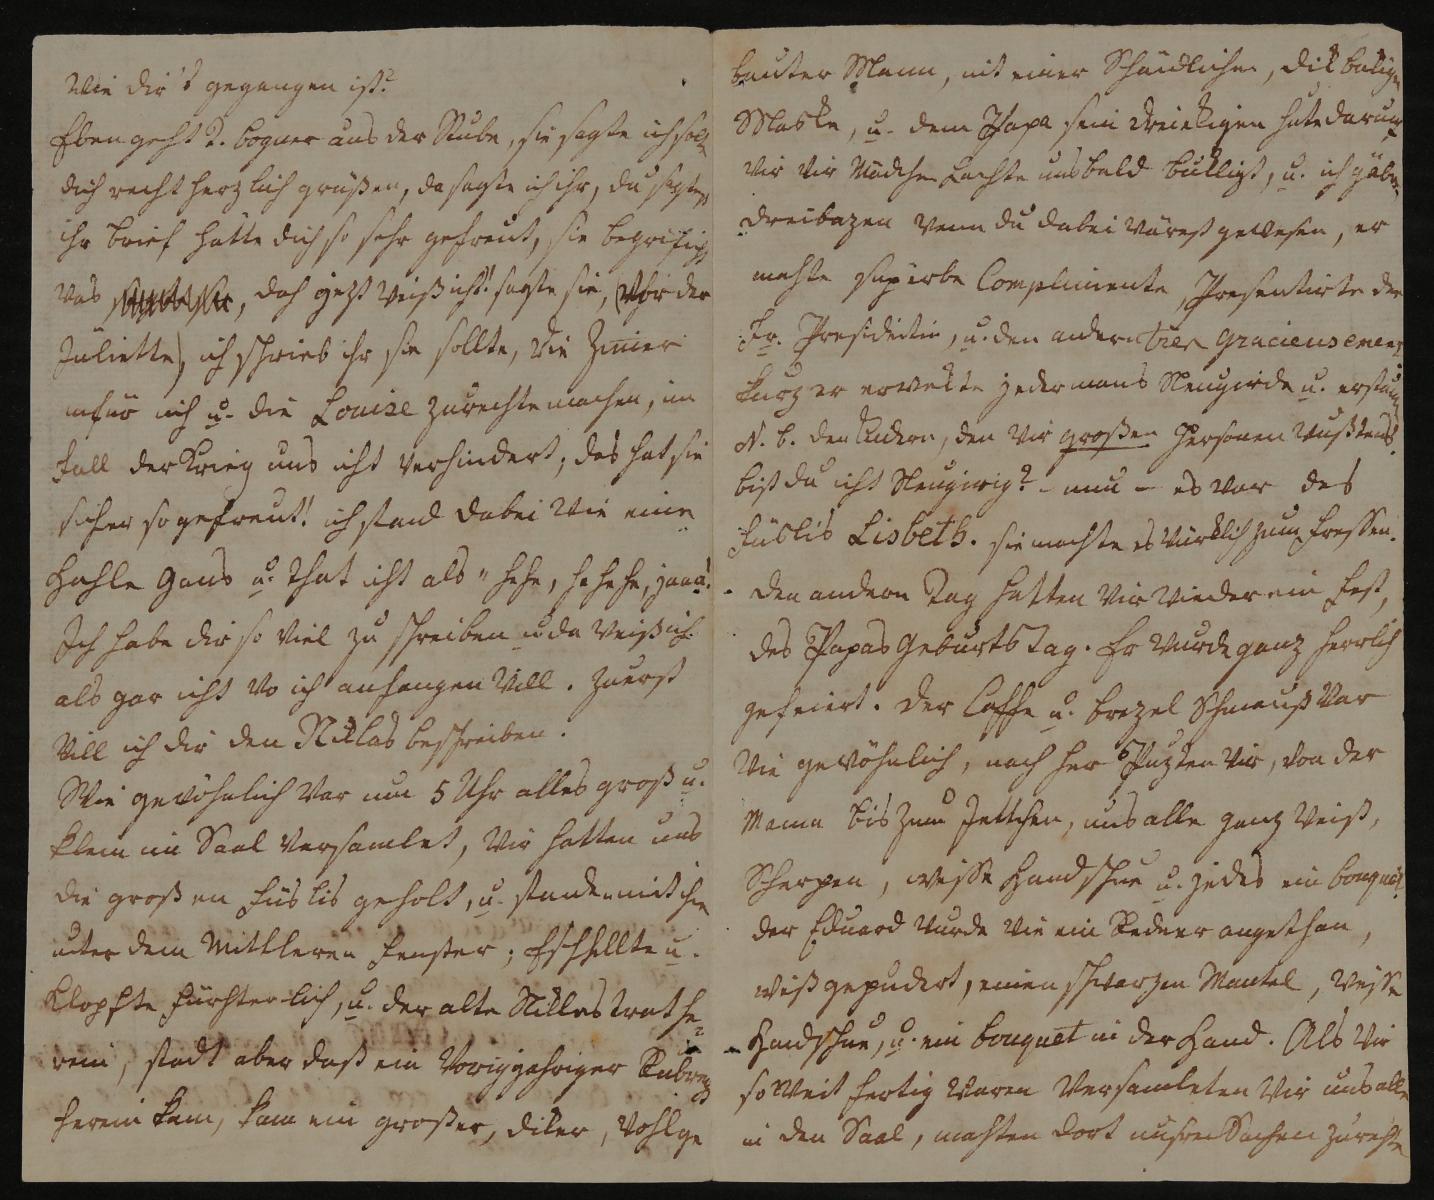 Wie dir's gegangen ist?
Eben geht J. Bogner aus der Stube, sie sagte ich soll
dich recht herzlich grüßen, da sagte ich ihr, du sagtest
ihr brief hätte dich so sehr gefreut, sie begriff nicht
was, doch jezt weiß ichs! sagte sie, (vor der
Juliette) ich schrieb ihr sie sollte, die Zimer
für mich u. die Louise zurechte machen, im
fall der Krieg uns nicht verhindert; das hat sie
sicher so gefreut! ich stand dabei wie eine
Gans u. that nicht als " hehe, hehehe, jaaa!
Ich habe dir so viel zu schreiben u. da weiß ich
als gar nicht wo ich anfangen will. Zuerst
will ich dir den Niklas beschreiben.
Wie gewöhnlich war um 5 Uhr alles groß u.
klein im Saal versamlet, wir hatten uns
die großen Füslis geholt, u. standen mit ihn
unter dem mittleren Fenster; Es schellte u.
klopfte fürchterlich, u. der alte Niklas trat he-
rein, stadt aber daß ein vorigjahriger
herein kam, kam ein großer, diker, wohlge
bauter Mann, mit einer Scheidlichen, dikbakigen
Maske, u. dem Papa sein dreiekigen hute darum
wir wir Mädchen Lachte uns bald bukligt, u. ich gäbe
dreibazen wenn du dabei wärest gewesen, er
machte superbe Complimente, Presentirte der
Fr. Presidentin, u. den andern
kurz er erwekte jedermans Neugirde u. erstaunen
N. b. den Kindern, den wir großen Personen wußtens!
bist du nicht Neugirig? - nun - es war des
Füslis Lisbeth. sie machte es würklich zum Fressen.
den andern Tag hatten wir wieder ein Fest,
des Papas Geburtstag. Er wurde ganz herrlich
gefeiert. der Caffe u. brezel Schmauß war
wie gewöhnlich, nach her Puzten wir, von der
Mama bis zum Jettchen, uns alle ganz weiß,
Scherpen, weisse Handschue u. jedes ein bouquet
der Eduard wurde wie ein Redner angethan,
weiß gepudert, einen schwarzen Mantel, weisse
Handschue, u. ein bouquet in der Hand. Als wir
so weit fertig waren versamleten wir uns alle
in den Saal, machten dort unsere Sachen zurechte